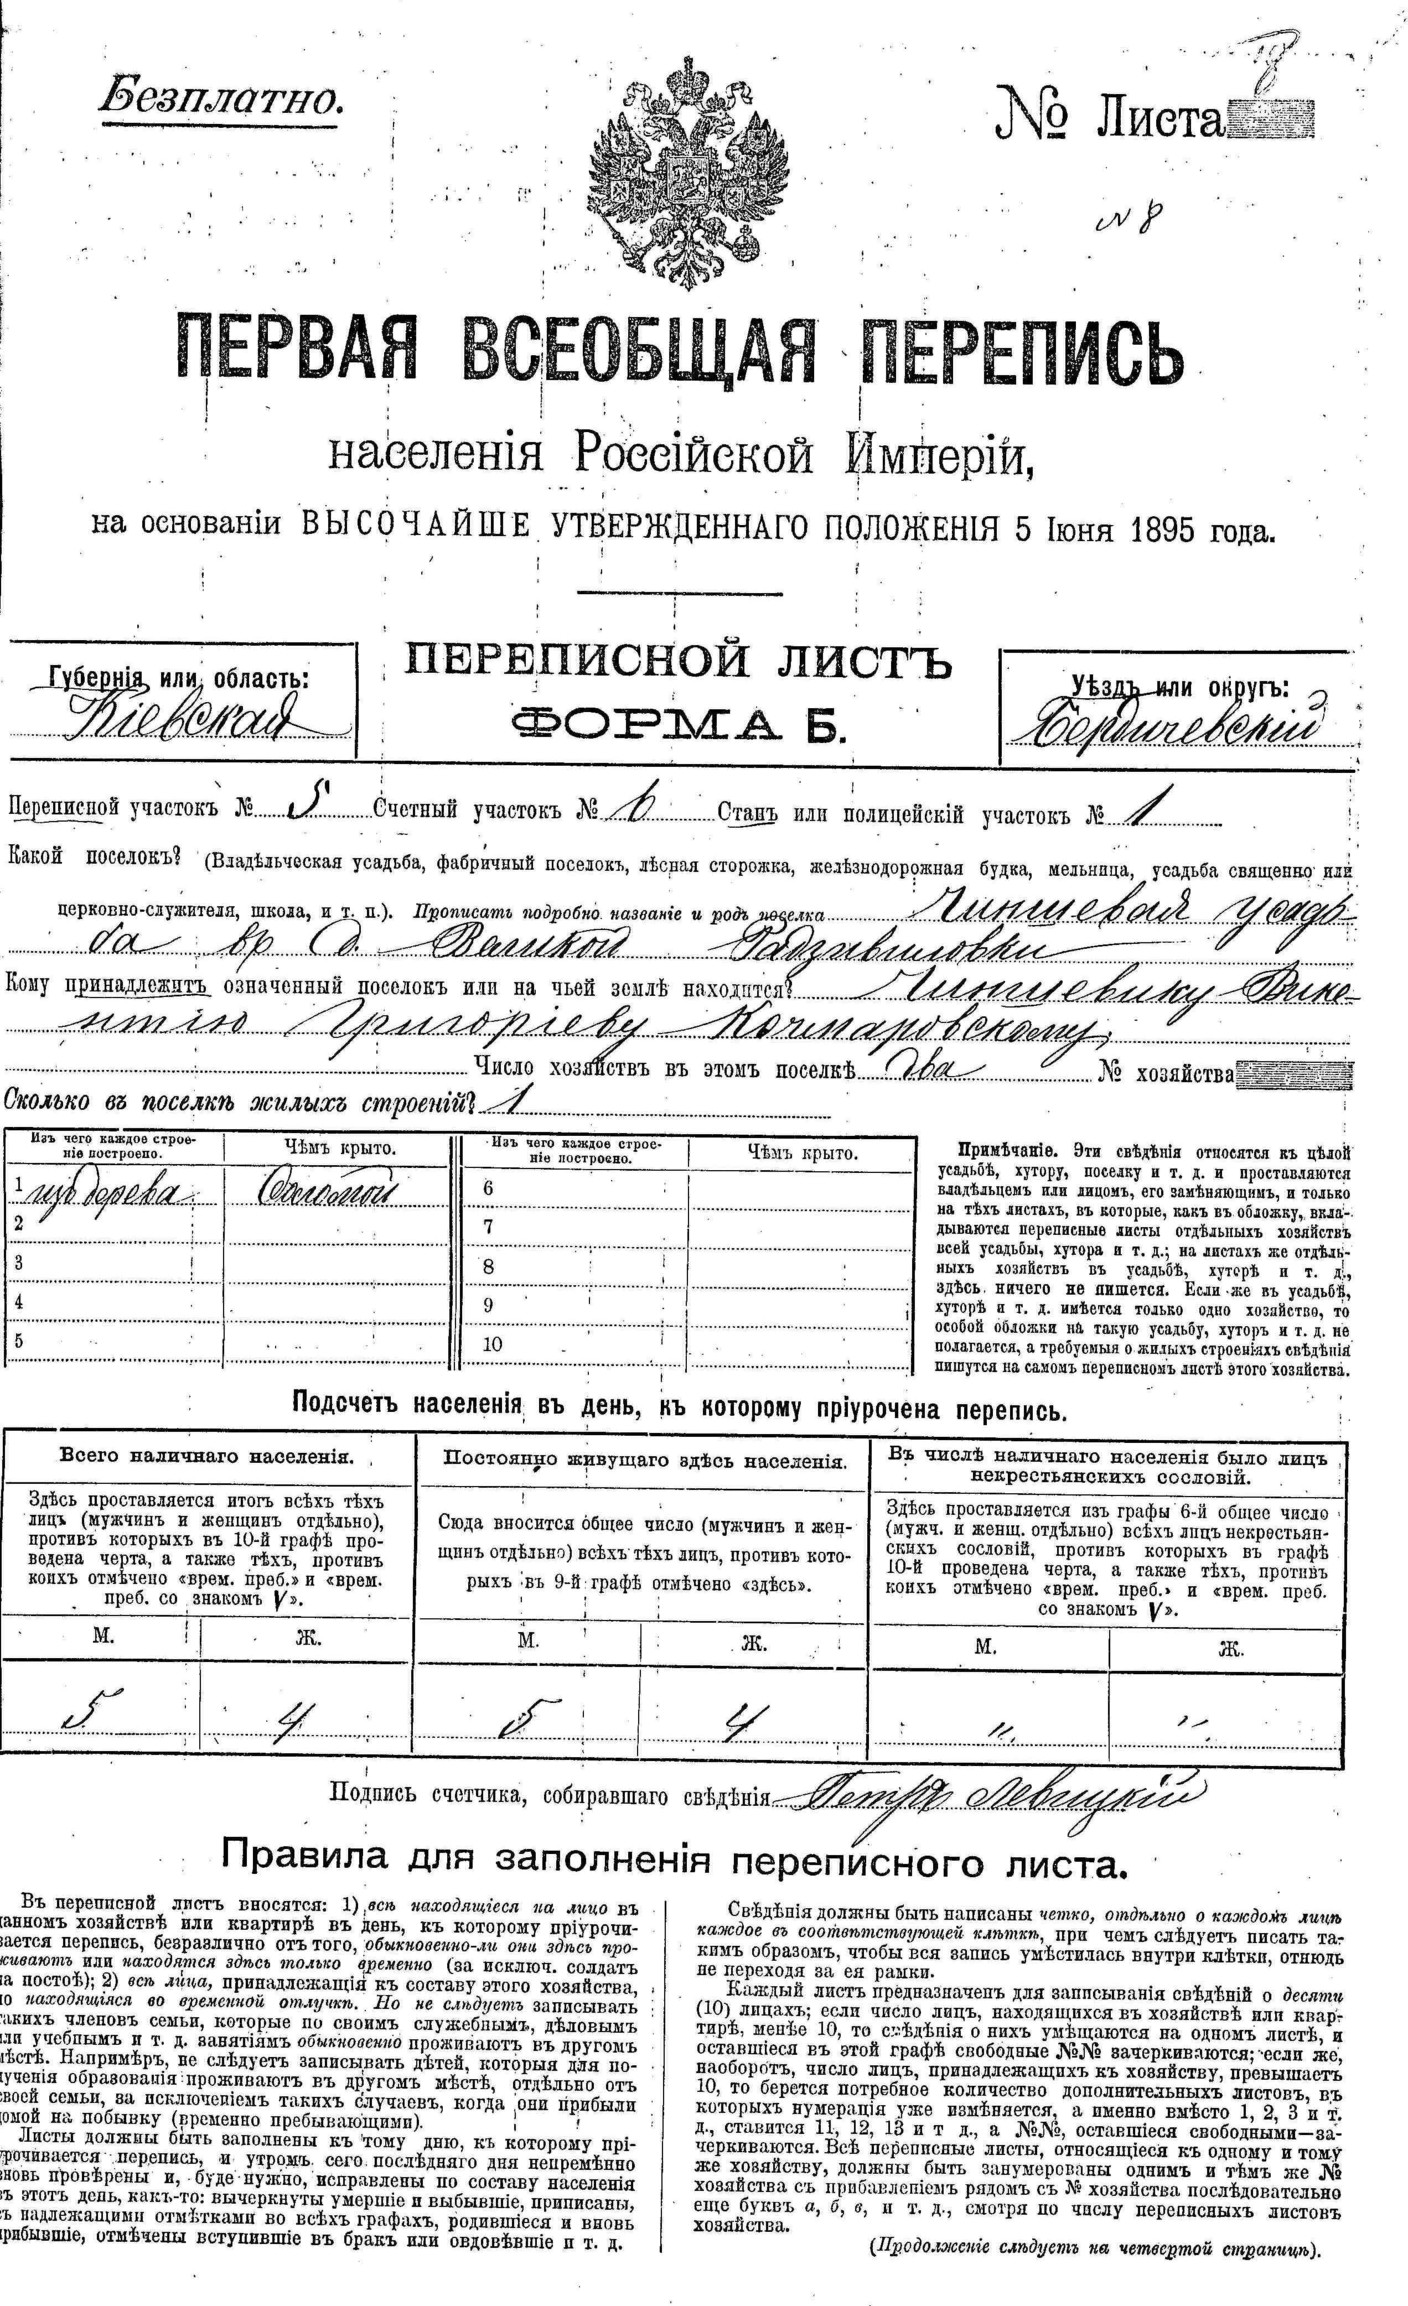 Безплатно.
№ Листа 8
№ 8
ПЕРВАЯ ВСЕОБЩАЯ ПЕРЕПИСЬ
населенія Россійской Имперіи,
на основаніи ВЫСОЧАЙШЕ УТВЕРЖДЕННАГО ПОЛОЖЕНІЯ 5 Іюня 1895 года.
ПЕРЕПИСНОЙ ЛИСТЪ
ФОРМА Б.
Губернія или область:
Кіевская
Уѣздъ или округъ:
Бердичевскій
Переписной участокъ № 5 Счетный участокъ № 6 Станъ или полицейскій участокъ № 1
Какой поселокъ? (Владѣльческая усадьба, фабричный поселокъ, лѣсная сторожка, желѣзнодорожная будка, мельница, усадьба священно или
церковно-служителя, школа, и т. п.). Прописать подробно названіе и родъ поселка Чиншевая усадь-
ба въ д. Великой Радзивиловки
Кому принадлежитъ означенный поселокъ или на чьей землѣ находится? Чиншевику Вике-
нтію Григоріеву Кочмаровскому,
Число хозяйствъ въ этомъ поселкѣ два № хозяйства
Сколько въ поселкѣ жилыхъ строеній? 1
Изъ чего каждое строе-
ніе построено.
Чѣмъ крыто.
Изъ чего каждое строе-
ніе построено.
Чѣмъ крыто.
1 изъ дерева Соломой
2
3
4
5
6
7
8
9
10
Примѣчаніе. Эти свѣдѣнія относятся къ цѣлой
усадьбѣ, хутору, поселку и т. д. и проставляются
владѣльцемъ или лицомъ, его замѣняющимъ, и только
на тѣхъ листахъ, въ которые, какъ въ обложку, вкла-
дываются переписные листы отдѣльныхъ хозяйствъ
всей усадьбы, хутора и т. д.; на листахъ же отдѣль-
ныхъ хозяйствъ въ усадьбѣ, хуторѣ и т. д.,
здѣсь ничего не пишется. Если же въ усадьбѣ,
хуторѣ и т. д. имѣется только одно хозяйство, то
особой обложки на такую усадьбу, хуторъ и т. д. не
полагается, а требуемыя о жилыхъ строеніяхъ свѣдѣнія
пишутся на самомъ переписномъ листѣ этого хозяйства.
Подсчетъ населенія въ день, къ которому пріурочена перепись.
Всего наличнаго населенія.
Здѣсь проставляется итогъ всѣхъ тѣхъ
лицъ (мужчинъ и женщинъ отдѣльно),
противъ которыхъ въ 10-й графѣ про-
ведена черта, а также тѣхъ, противъ
коихъ отмѣчено «врем. преб.» и «врем.
преб. со знакомъ V».
М. Ж.
5 4
Постоянно живущаго здѣсь населенія.
Сюда вносится общее число (мужчинъ и жен-
щинъ отдѣльно) всѣхъ тѣхъ лицъ, противъ кото-
рыхъ въ 9-й графѣ отмѣчено «здѣсь».
М. Ж.
5 4
Въ числѣ наличнаго населенія было лицъ
некрестьянскихъ сословій.
Здѣсь проставляется изъ графы 6-й общее число
(мужч. и женщ. отдѣльно) всѣхъ лицъ некрестьян-
скихъ сословій, противъ которыхъ въ графѣ
10-й проведена черта, а также тѣхъ, противъ
коихъ отмѣчено «врем. преб.» и «врем. преб.
со знакомъ V».
М. Ж.
" "
Подпись счетчика, собиравшаго свѣдѣнія Петръ Левицкій
Правила для заполненія переписного листа.
Въ переписной листъ вносятся: 1) всѣ находящіеся на лицо въ
данномъ хозяйствѣ или квартирѣ въ день, къ которому пріурочи-
вается перепись, безразлично отъ того, обыкновенно-ли они здѣсь про-
живаютъ или находятся здѣсь только временно (за исключ. солдатъ
на постоѣ); 2) всѣ лица, принадлежащія къ составу этого хозяйства,
но находящіяся во временной отлучкѣ. Но не слѣдуетъ записывать
такихъ членовъ семьи, которые по своимъ служебнымъ, дѣловымъ
или учебнымъ и т. д. занятіямъ обыкновенно проживаютъ въ другомъ
мѣстѣ. Напримѣръ, не слѣдуетъ записывать дѣтей, которыя для по-
лученія образованія проживаютъ въ другомъ мѣстѣ, отдѣльно отъ
своей семьи, за исключеніемъ такихъ случаевъ, когда они прибыли
домой на побывку (временно пребывающими).
Листы должны быть заполнены къ тому дню, къ которому прі-
урочивается перепись, и утромъ сего послѣдняго дня непремѣнно
вновь провѣрены и, буде нужно, исправлены по составу населенія
въ этотъ день, какъ-то: вычеркнуты умершіе и выбывшіе, приписаны,
съ надлежащими отмѣтками во всѣхъ графахъ, родившіеся и вновь
прибывшіе, отмѣчены вступившіе въ бракъ или овдовѣвшіе и т. д.
Свѣдѣнія должны быть написаны четко, отдѣльно о каждомъ лицѣ
каждое въ соотвѣтствующей клѣткѣ, при чемъ слѣдуетъ писать та-
кимъ образомъ, чтобы вся запись умѣстилась внутри клѣтки, отнюдь
не переходя за ея рамки.
Каждый листъ предназначенъ для записыванія свѣдѣній о десяти
(10) лицахъ; если число лицъ, находящихся въ хозяйствѣ или квар-
тирѣ, менѣе 10, то свѣдѣнія о нихъ умѣщаются на одномъ листѣ, и
оставшіеся въ этой графѣ свободные №№ зачеркиваются; если же,
наоборотъ, число лицъ, принадлежащихъ къ хозяйству, превышаетъ
10, то берется потребное количество дополнительныхъ листовъ, въ
которыхъ нумерація уже измѣняется, а именно вмѣсто 1, 2, 3 и т.
д., ставится 11, 12, 13 и т д., а №№, оставшіеся свободными—за-
черкиваются. Всѣ переписные листы, относящіеся къ одному и тому
же хозяйству, должны быть занумерованы однимъ и тѣмъ же №
хозяйства съ прибавленіемъ рядомъ съ № хозяйства послѣдовательно
еще буквъ а, б, в, и т. д., смотря по числу переписныхъ листовъ
хозяйства.
(Продолженіе слѣдуетъ на четвертой страницѣ).